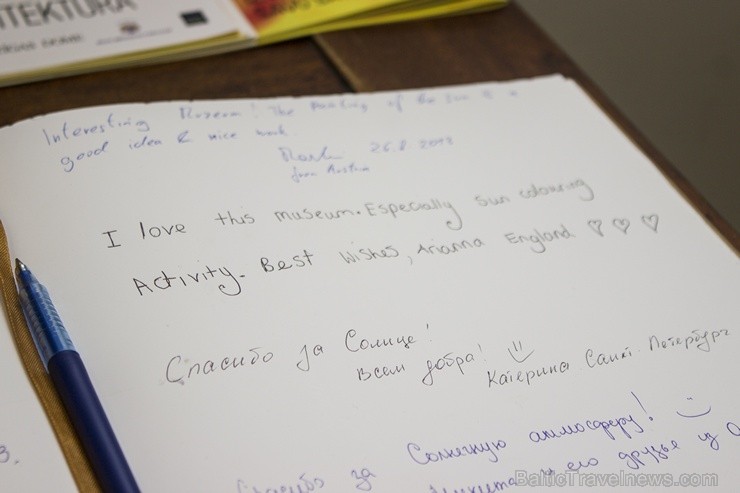 Interesting Museum! The painting of the sun is a
good idea & nice work.
26.8.2013
from Austria
I love this museum. Especially sun colouring
Activity. Best wishes, Arianna England ♡ ♡ ♡
Спасибо за Солнце!
Всем добра!
Катерина Санкт Петербург
Спасибо за Солнечную атмосферу!
Никита и его друзья из
3.
BalticTravelnews.com